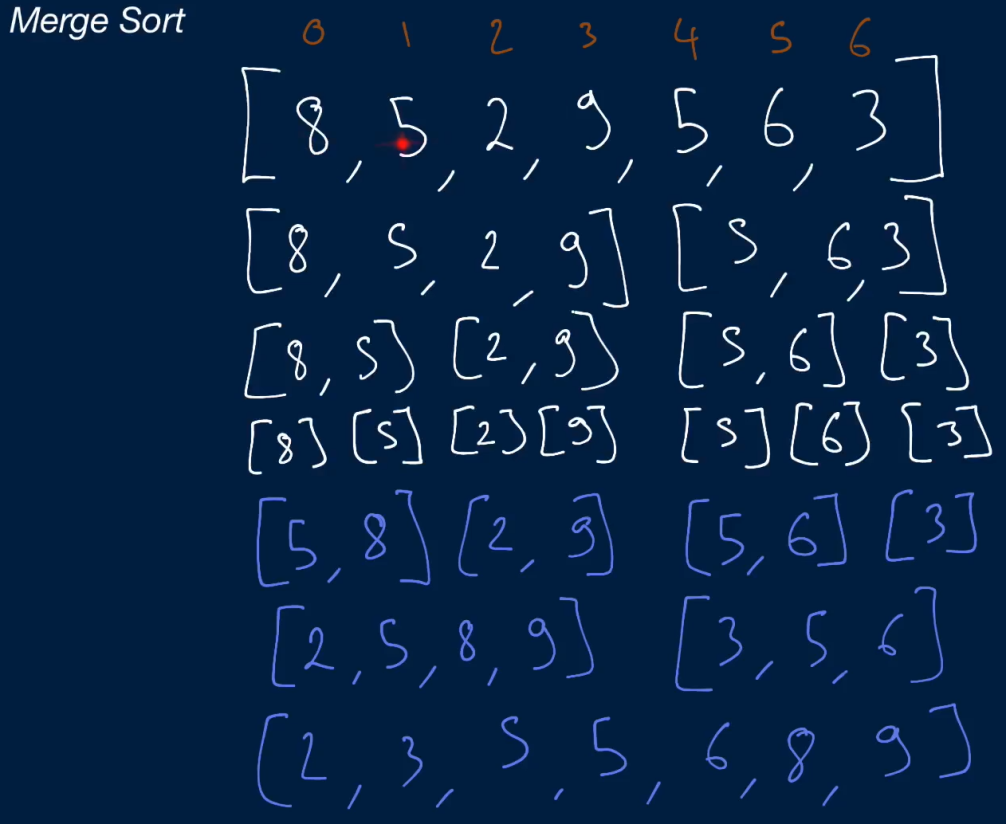 Merge Sort
0 1 2 3 4 5 6
[8, 5, 2, 9, 5, 6, 3]
[8, 5, 2, 9] [5, 6, 3]
[8, 5] [2, 9] [5, 6] [3]
[8] [5] [2] [9] [5] [6] [3]
[5, 8] [2, 9] [5, 6] [3]
[2, 5, 8, 9] [3, 5, 6]
[2, 3, 5, 5, 6, 8, 9]